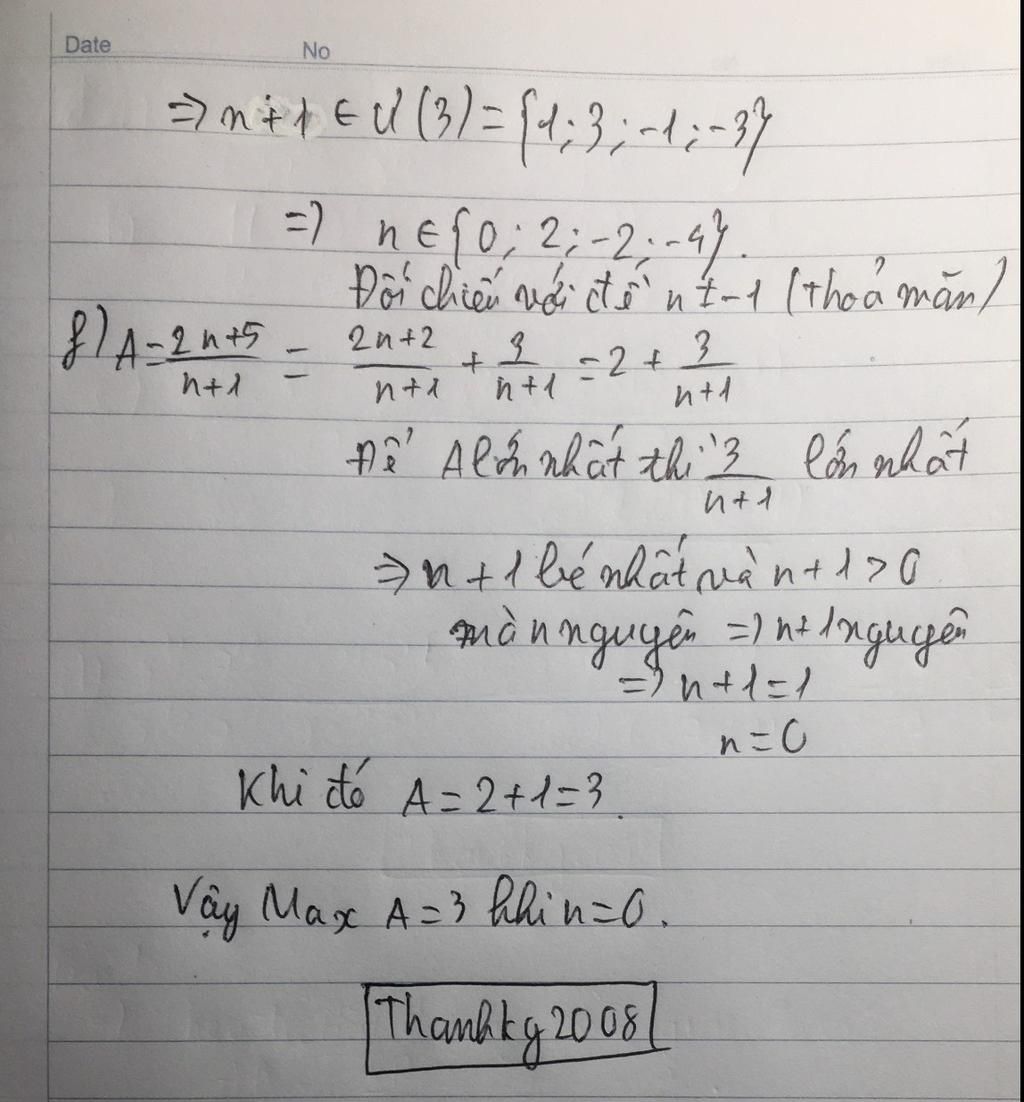 Date No
=> n + 1 ∈ Ư(3) = {1; 3; -1; -3}
=> n ∈ {0; 2; -2; -4}.
Đối chiếu với đề n ≠ -1 (thoả mãn)
f) A = \frac{2n+5}{n+1} = \frac{2n+2}{n+1} + \frac{3}{n+1} = 2 + \frac{3}{n+1}
Để A lớn nhất thì \frac{3}{n+1} lớn nhất
=> n + 1 bé nhất và n + 1 > 0
mà n nguyên => n + 1 nguyên
=> n + 1 = 1
n = 0
Khi đó A = 2 + 1 = 3.
Vậy Max A = 3 khi n = 0.
Thanhkg2008